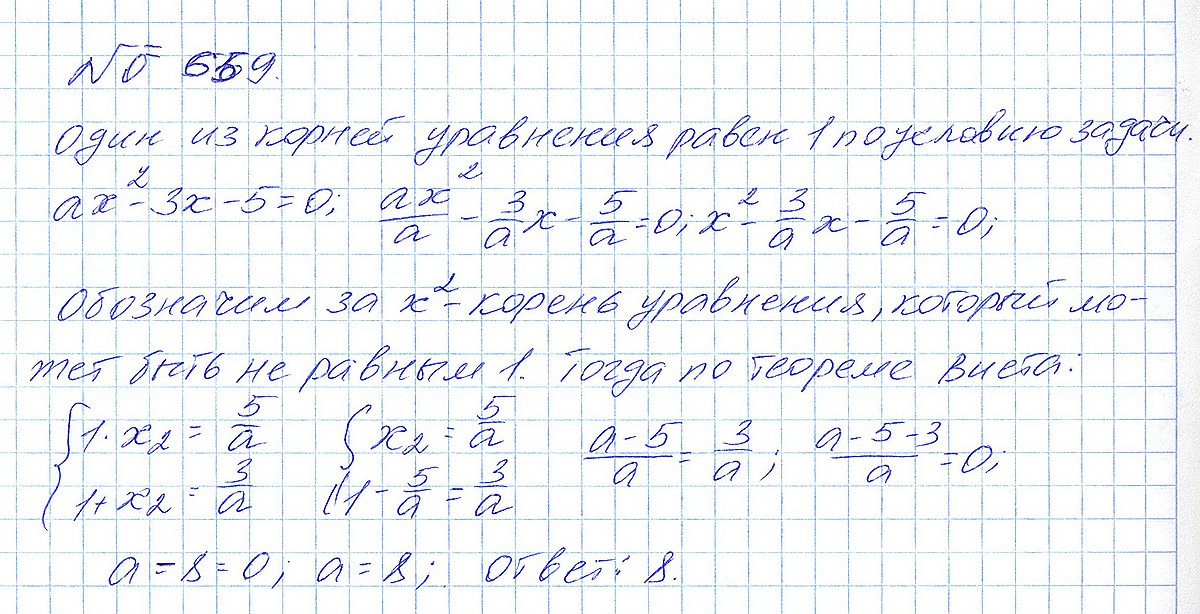 № 659.
Один из корней уравнения равен 1 по условию задачи.
ax² - 3x - 5 = 0; ax²/a - 3/a x - 5/a = 0; x² - 3/a x - 5/a = 0;
Обозначим за x² - корень уравнения, который мо-
жет быть не равным 1. Тогда по теореме Виета:
{1·x₂ = 5/a {x₂ = 5/a (a-5)/a = 3/a; (a-5-3)/a = 0;
1+x₂ = 3/a 1 - 5/a = 3/a
a - 8 = 0; a = 8; Ответ: 8.